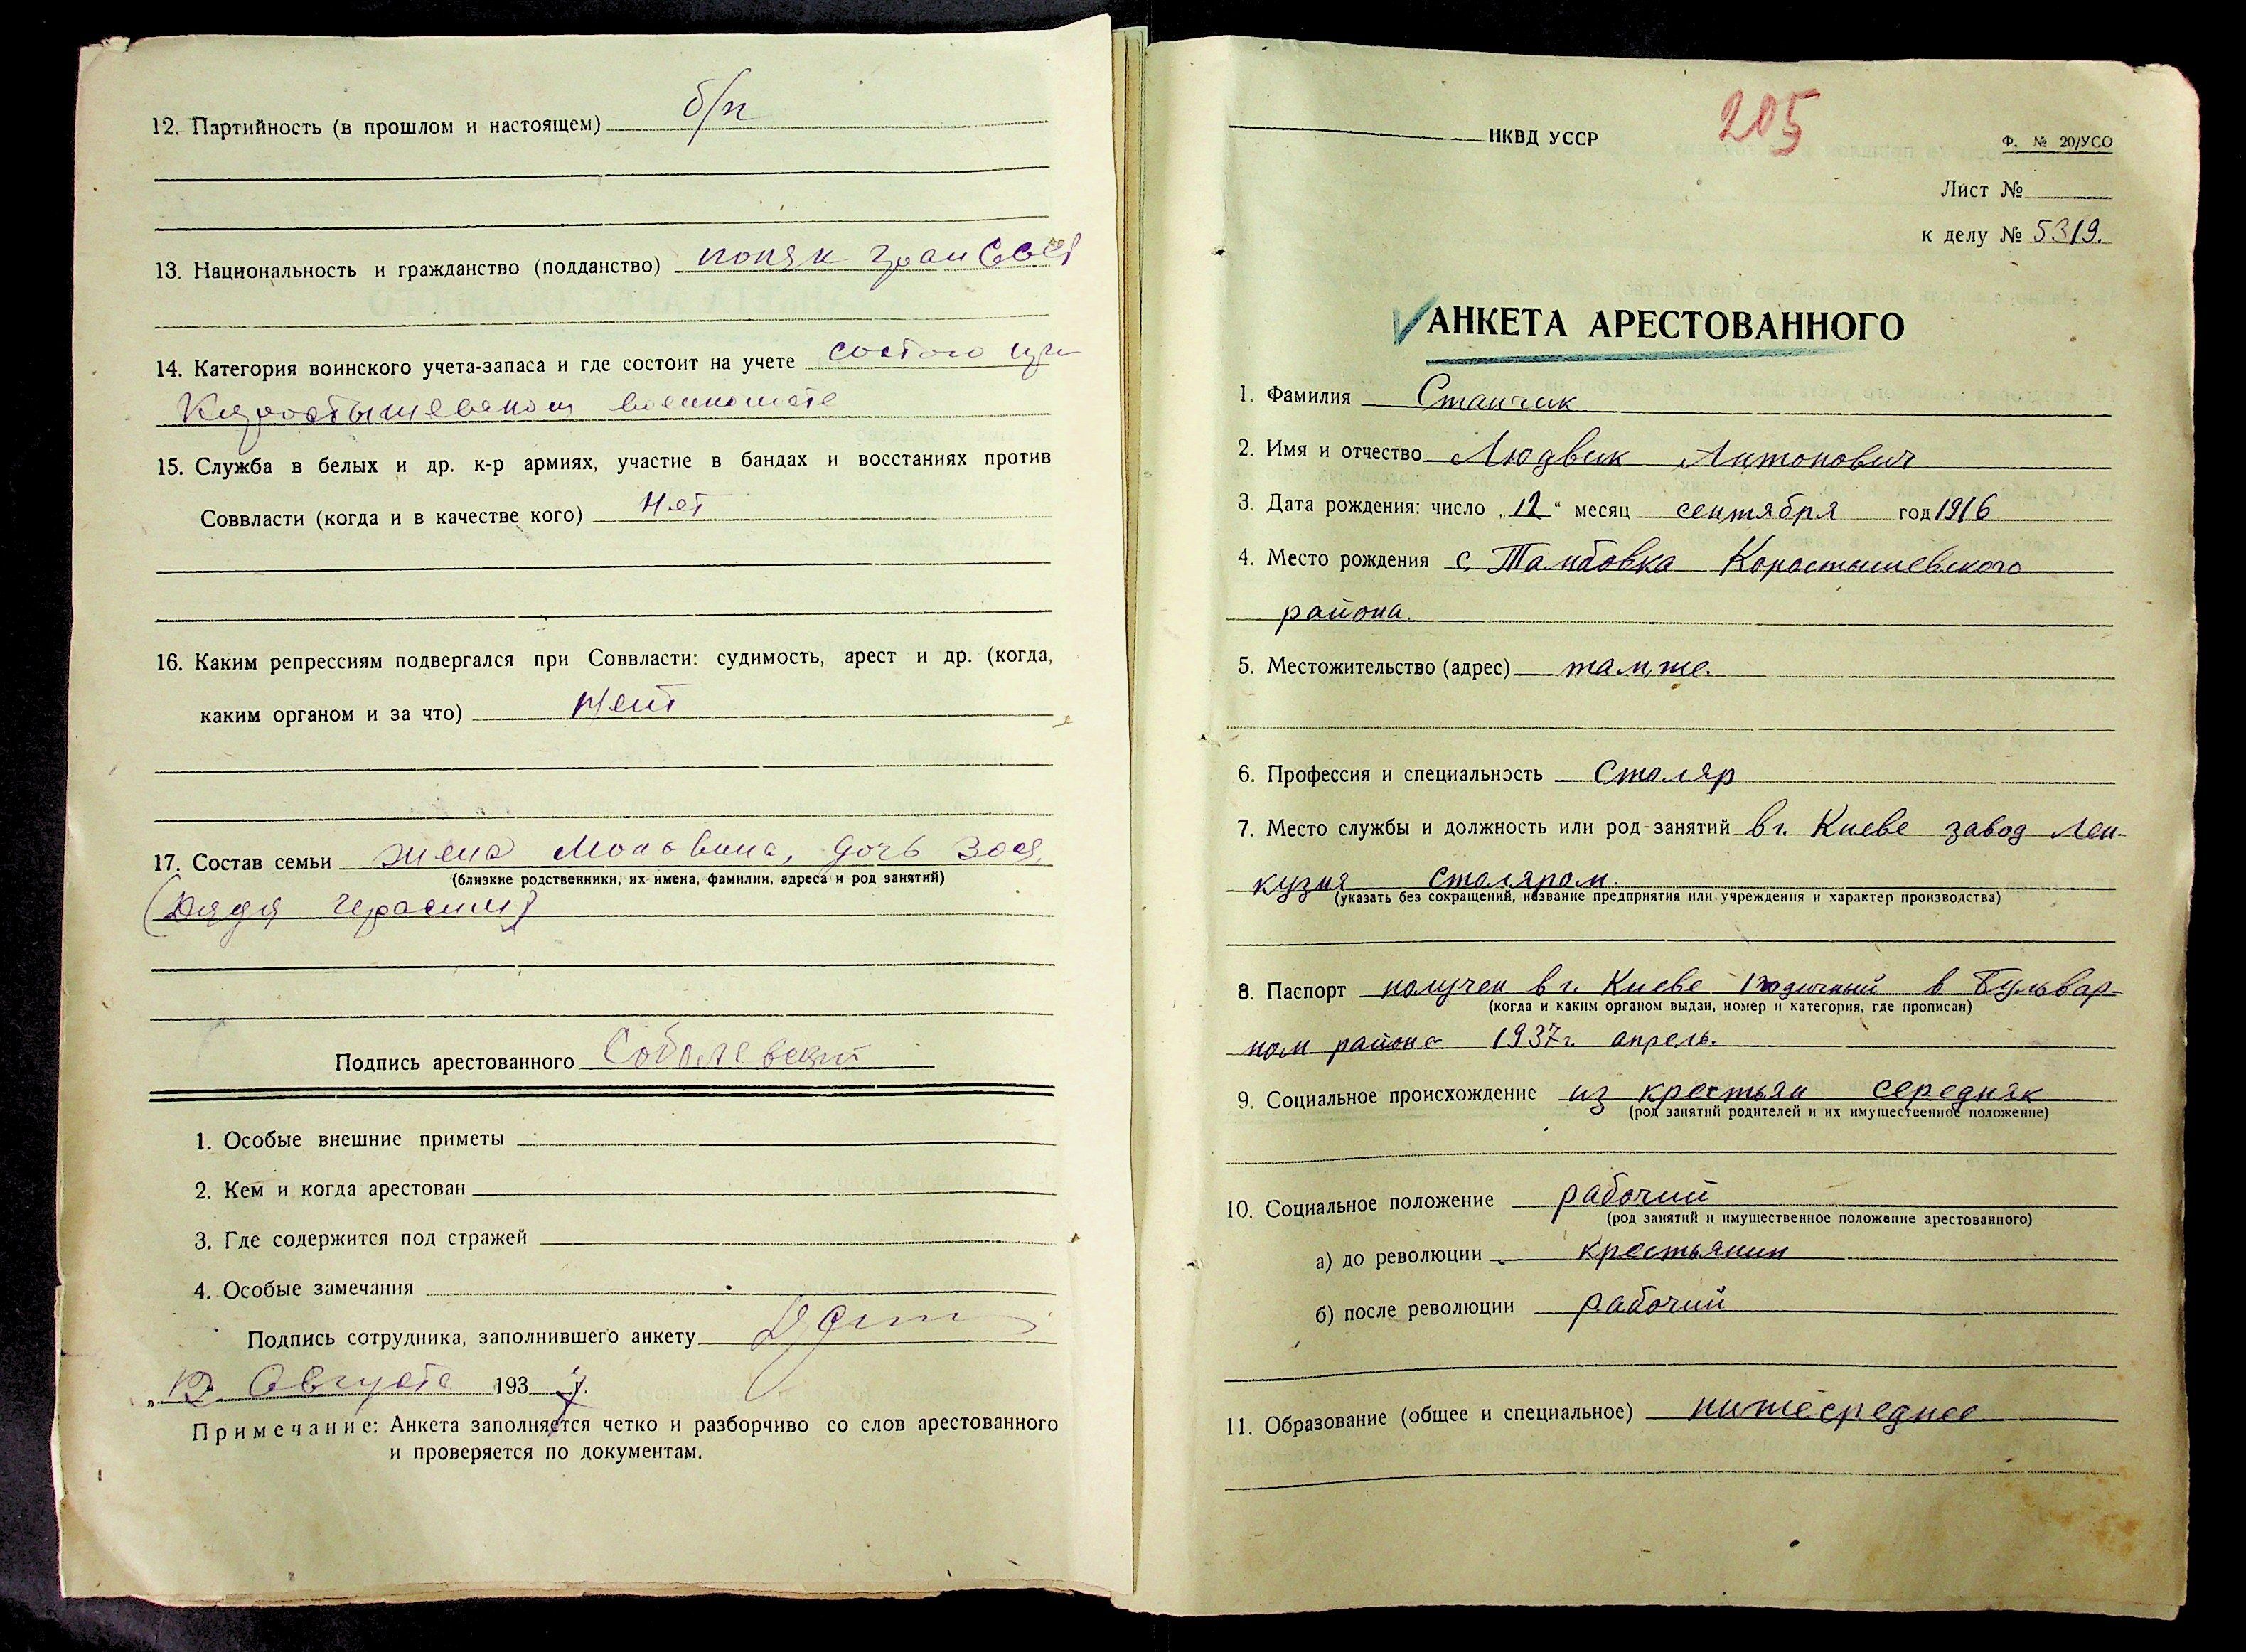 12. Партийность (в прошлом и настоящем) б/п
13. Национальность и гражданство (подданство) поляк гран СССР
14. Категория воинского учета-запаса и где состоит на учете состою при
Коростышевском военкомате
15. Служба в белых и др. к-р армиях, участие в бандах и восстаниях против
Соввласти (когда и в качестве кого) Нет
16. Каким репрессиям подвергался при Соввласти: судимость, арест и др. (когда,
каким органом и за что) Нет
17. Состав семьи жена дочь Зося,
(близкие родственники, их имена, фамилии, адреса и род занятий)
(Дядя Герасим)
Подпись арестованного Соболевский
1. Особые внешние приметы
2. Кем и когда арестован
3. Где содержится под стражей
4. Особые замечания
Подпись сотрудника, заполнившего анкету
„12 Августа 1937.
Примечание: Анкета заполняется четко и разборчиво со слов арестованного
и проверяется по документам.
НКВД УССР
205
Ф. № 20/УСО
Лист №
к делу № 5319.
АНКЕТА АРЕСТОВАННОГО
1. Фамилия Станчик
2. Имя и отчество Людвик Антонович
3. Дата рождения: число „12“ месяц сентября год 1916
4. Место рождения с. Тамбовка Коростышевского
района.
5. Местожительство (адрес) там, же.
6. Профессия и специальность Столяр
7. Место службы и должность или род занятий в г. Киеве завод Лен-
кузня столяром.
(указать без сокращений, название предприятия или учреждения и характер производства)
8. Паспорт получен в г. Киеве 1 годичный в Бульвар-
(когда и каким органом выдан, номер и категория, где прописан)
ном районе 1937 г. апрель.
9. Социальное происхождение из крестьян середняк
(род занятий родителей и их имущественное положение)
10. Социальное положение рабочий
(род занятий и имущественное положение арестованного)
а) до революции крестьянин
б) после революции рабочий
11. Образование (общее и специальное) нижесреднее